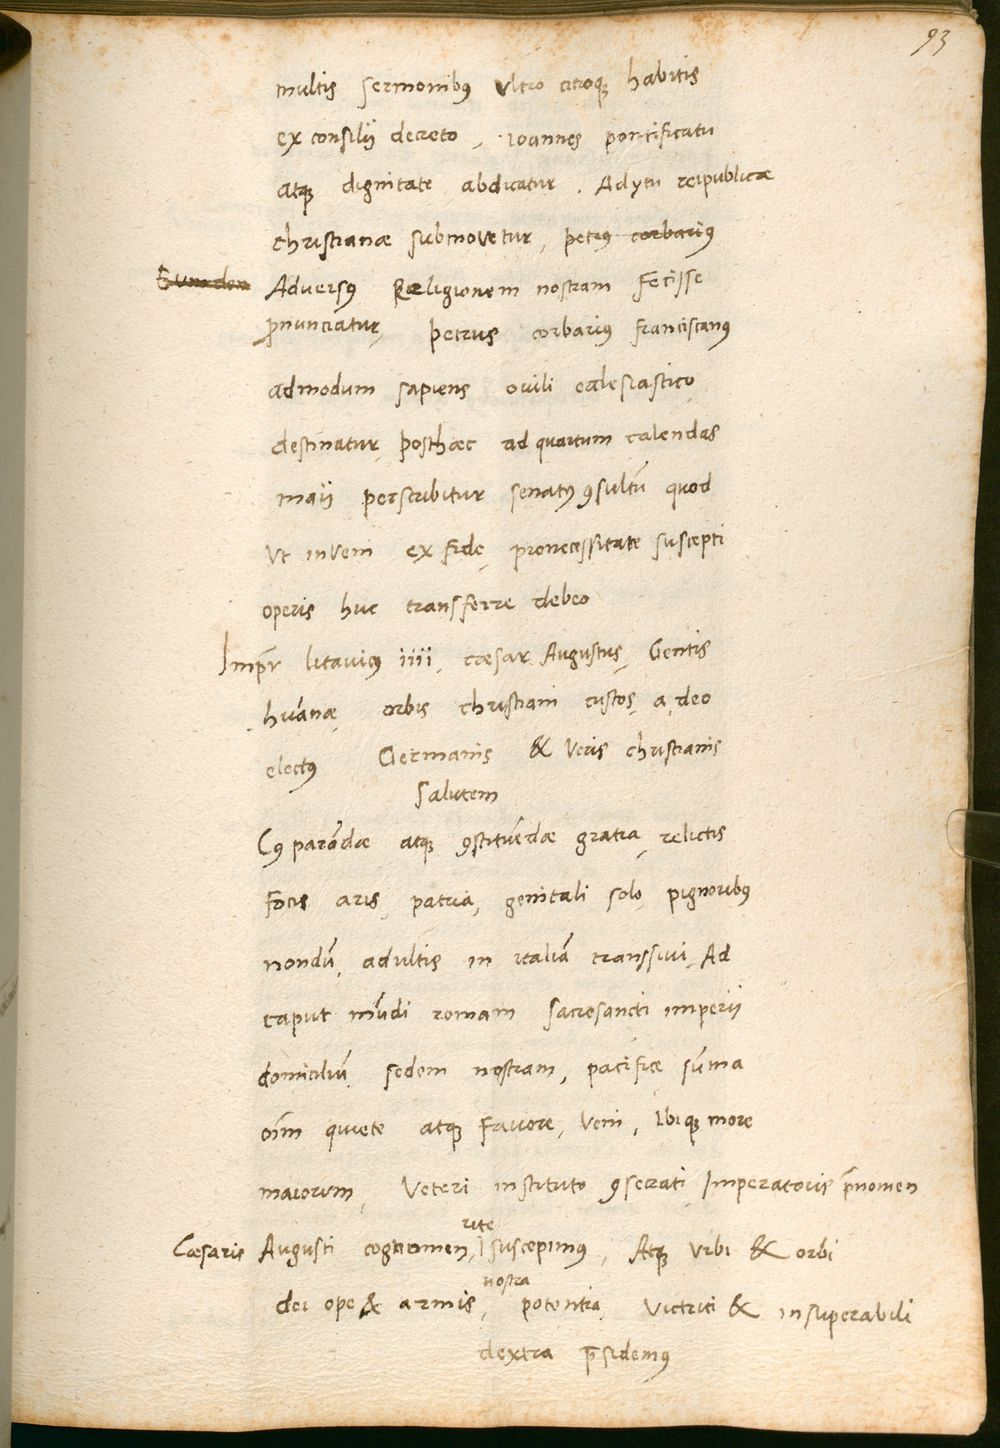 93
multis sermonibꝰ vltro citroqꝫ habitis
ex consilij decreto, ioannes pontificatu
atqꝫ dignitate abdicatur. Adytu reipublicæ
christianæ submovetur, petrꝰ corbariꝰ
Eundem Adversꝰ Religionem nostram Fecisse
p̄nunciatur, petrus corbariꝰ franciscanꝰ
admodum sapiens ovili ecclesiastico
destinatur, posthæc ad quartum calendas
maij perscribitur senatꝰ ꝯsultū quod
vt inveni ex fide, pro necessitate suscepti
operis huc transferre debeo
Imp̄r litavicꝰ iiii, cæsar Augustus, Gentis
hūanæ, orbis christiani custos, a deo
electꝰ Germanis & veris christianis
salutem
Cꝰ parādæ atqꝫ ꝯstituēdæ gratia, relictis
Focis aris, patria, genitali solo, pignoribꝰ
nondū, adultis in italiā transsivi, Ad
caput mūdi romam sacrosancti imperij
domiciliū, sedem nostram, pacificæ sūma
oīm quiete atqꝫ Favore, veni, ibiqꝫ more
maiorum, veteri instituto ꝯsecrati Imperatoris p̄nomen
Cæsaris Augusti cognomen, rite suscepimꝰ, Atqꝫ vrbi & orbi
dei ope & armis, nostra potentia, victrici & insuperabili
dextra p̄sidemꝰ